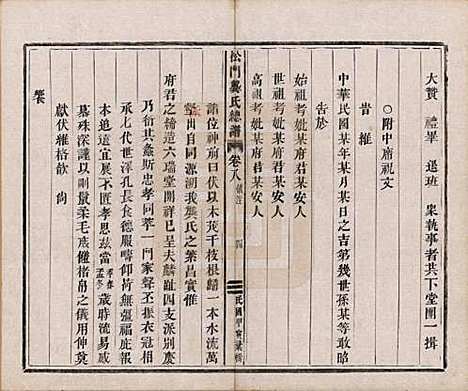 大贊 禮畢 退班 衆執事者共下堂團一揖
○附中席祝文
昔維
中華民國某年某月某日之吉第幾世孫某等敢昭
告於
始祖考妣某府君某安人
世祖考妣某府君某安人
高祖考妣某府君某安人
松門龔氏總譜 卷八 四 民國甲寅彙輯
諸位神前曰伏以木茂千枝根歸一本水流萬
出自同源溯我龔氏之蕃昌實惟
府君之綸造六瑞堂開祥已呈夫麟趾四支派別慶
乃衍其螽斯忠孝萃一門家聲丕振
承七代世澤孔長食德服疇仰荷無疆福庇報
本追遠宜展不匱孝思茲當歲時流易感
慕殊深謹以剛鬣柔毛庶饈楮帛之儀用伸奠
獻伏維格歆 尙
饗